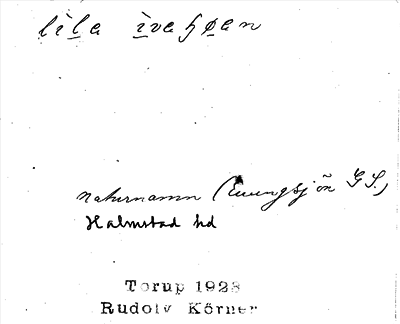 lila ivahøan
naturnamn (Evungsjön GS.)
Halmstad hd
Torup 1928
Rudolv Körner